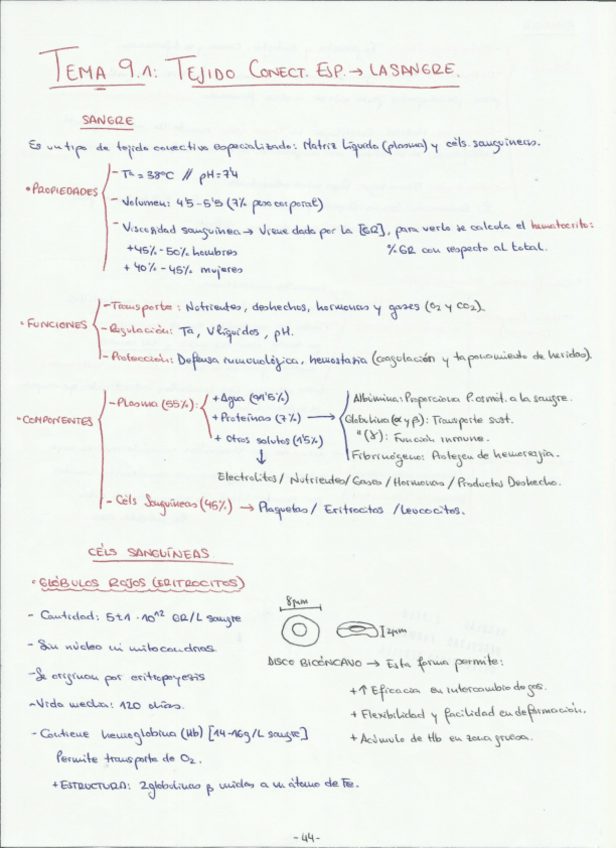 TEMA 9.1: TEJIDO CONECT. ESP. → LA SANGRE.
SANGRE
Es un tipo de tejido conectivo especializado: Matriz Líquida (plasma) y céls. sanguíneas.
• PROPIEDADES
- Tª = 38ºC // pH = 7'4
- Volumen: 4'5 - 5'5 (7% peso corporal)
- Viscosidad sanguínea → Viene dada por la [GR], para verlo se calcula el hematocrito:
+ 45% - 50% hombres % GR con respecto al total.
+ 40% - 45% mujeres
• FUNCIONES
- Transporte: Nutrientes, deshechos, hormonas y gases (O2 y CO2).
- Regulación: Tª, V líquidos, pH.
- Protección: Defensa inmunológica, hemostasia (coagulación y taponamiento de heridas).
• COMPONENTES
- Plasma (55%):
+ Agua (91'5%)
+ Proteínas (7%) →
+ Otros solutos (1'5%)
Albúmina: Proporciona P. osmót. a la sangre.
Globulina (α y β): Transporte sust.
" (γ): Función inmune.
Fibrinógeno: Protegen de hemorragia.
Electrolitos / Nutrientes / Gases / Hormonas / Productos Deshecho.
- Céls Sanguíneas (45%) → Plaquetas / Eritrocitos / Leucocitos.
CÉLS SANGUÍNEAS
• GLÓBULOS ROJOS (ERITROCITOS)
- Cantidad: 5±1 · 10^12 GR/L sangre
- Sin núcleo ni mitocondrias.
- Se originan por eritropoyesis
- Vida media: 120 días.
- Contiene hemoglobina (Hb) [14-16g/L sangre]
Permite transporte de O2.
+ ESTRUCTURA: 2 globulinas β unidas a un átomo de Fe.
8µm
2µm
DISCO BICÓNCAVO → Esta forma permite:
+ ↑ Eficacia en intercambio de gas.
+ Flexibilidad y facilidad en deformación.
+ Acúmulo de Hb en zona gruesa.
- 44 -